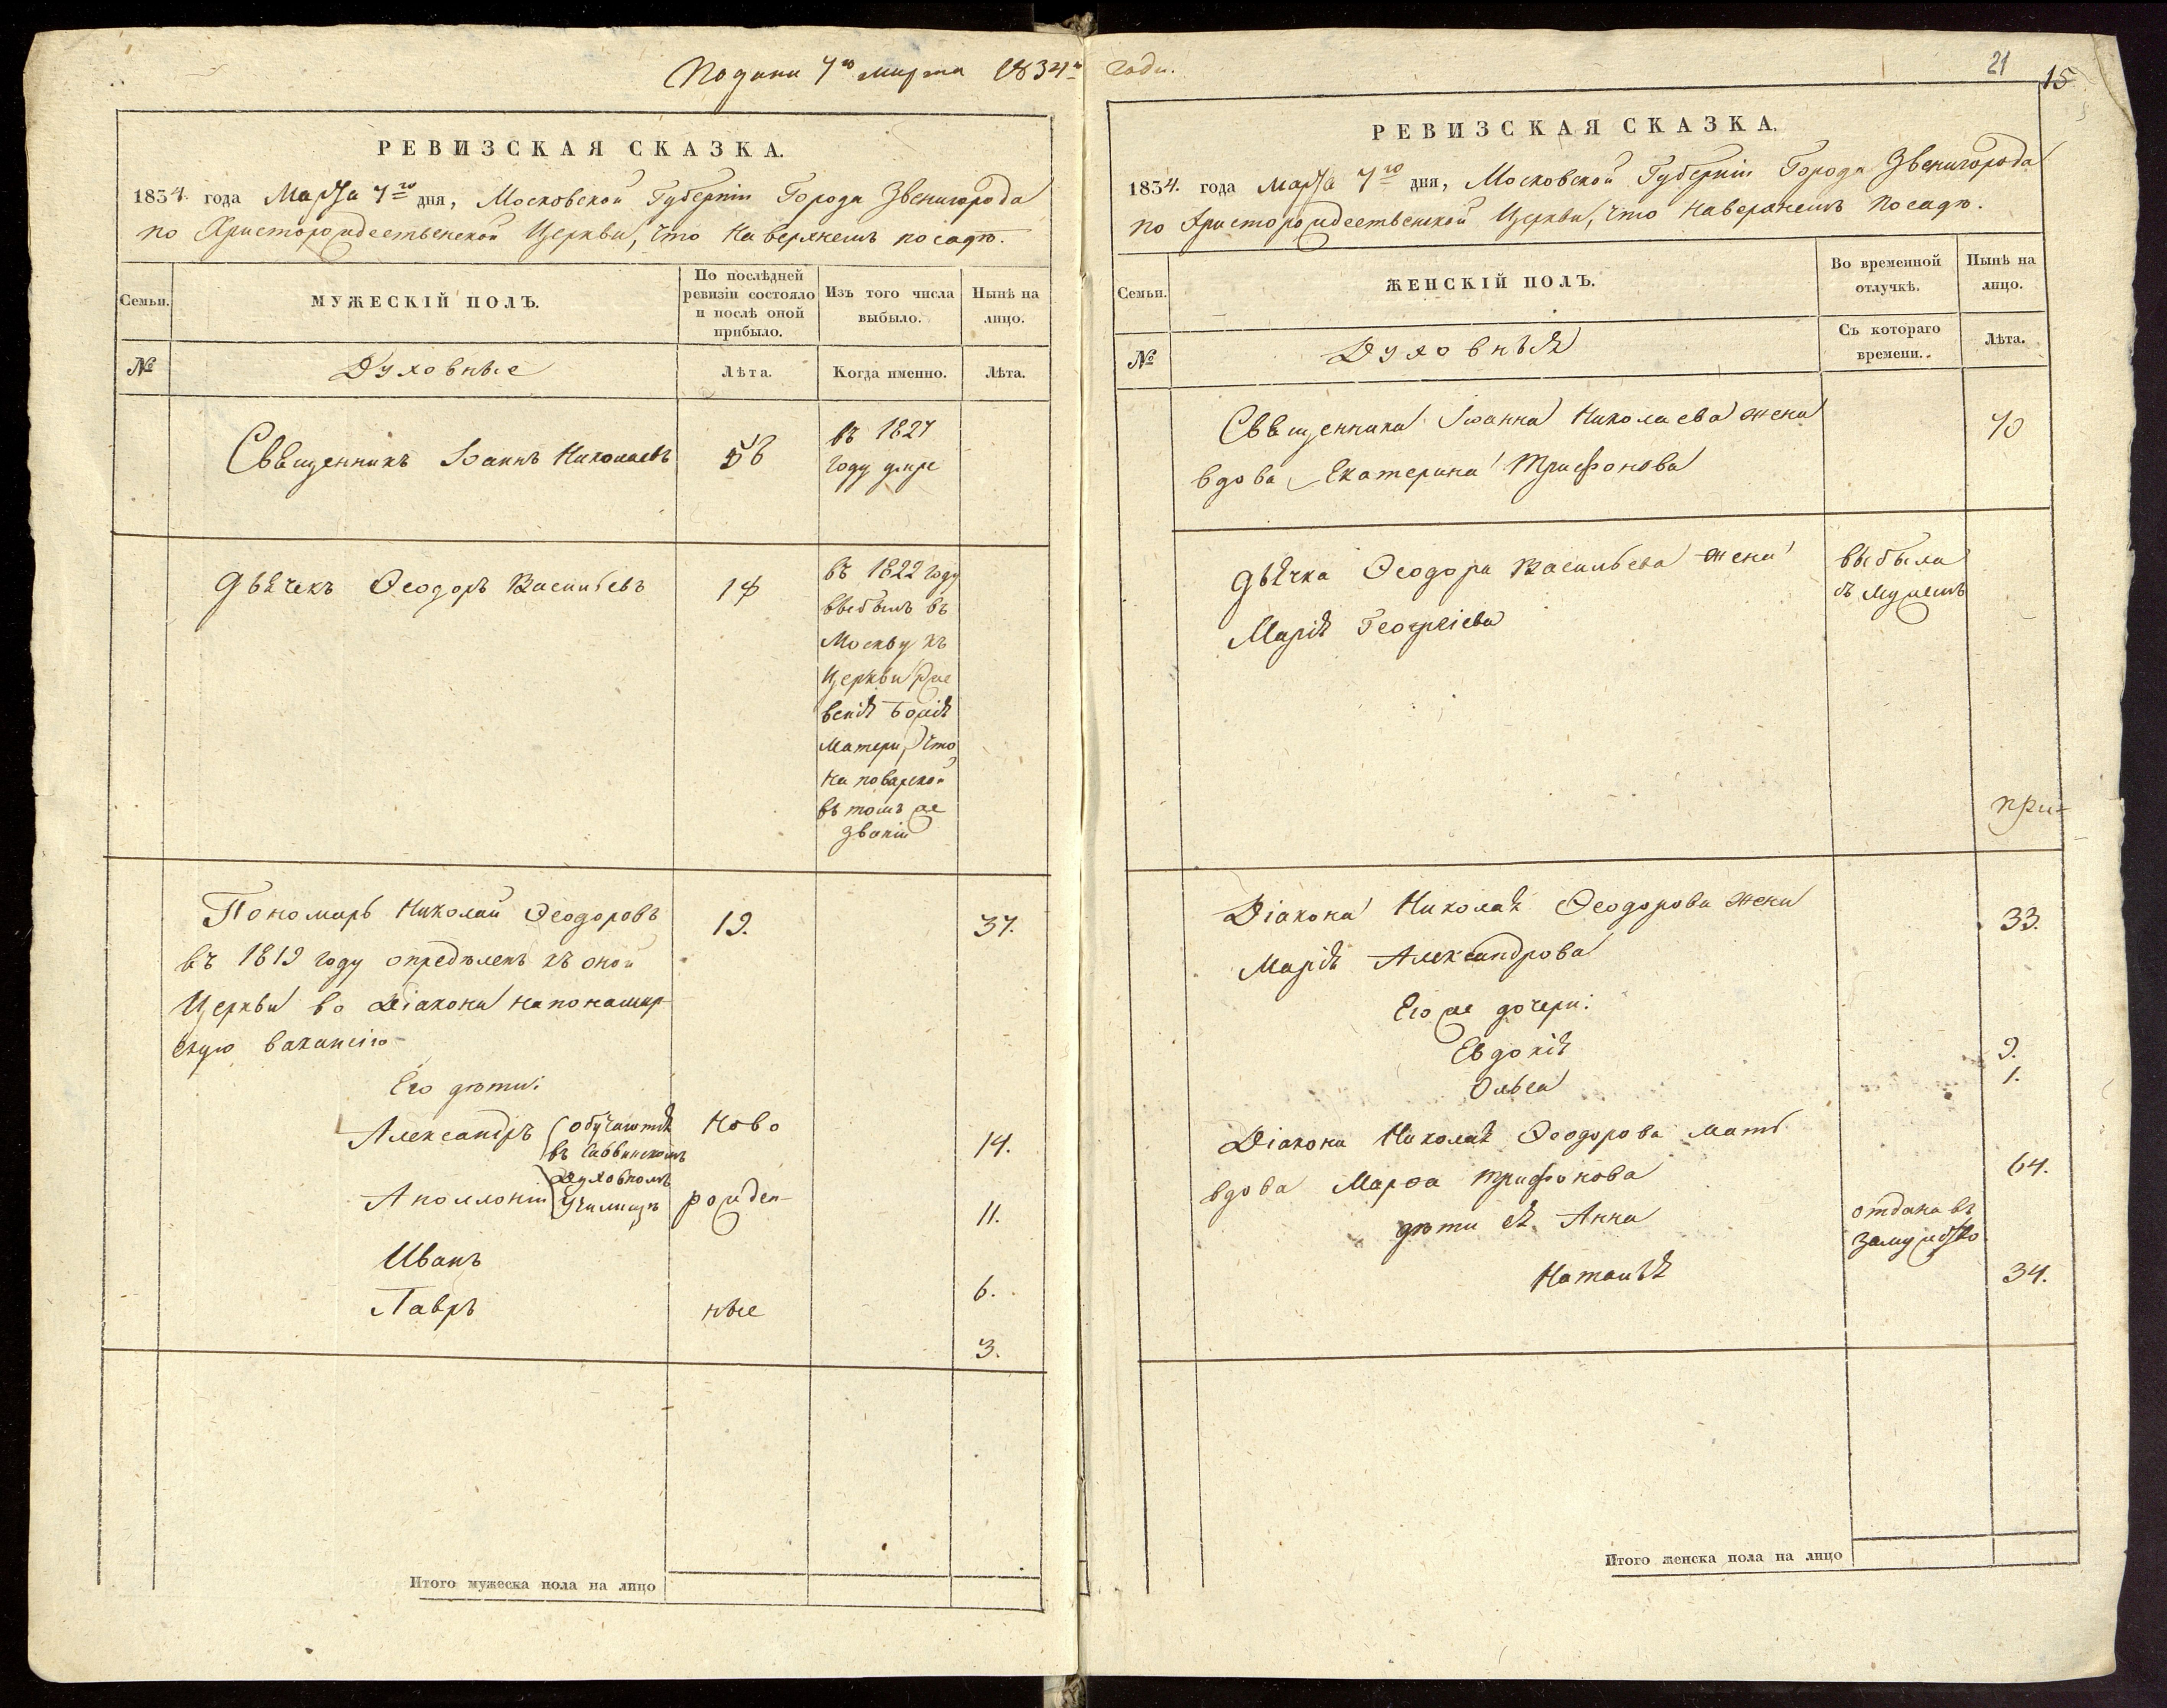 Подана 7го марта 1834го года.
21
15
РЕВИЗСКАЯ СКАЗКА.
1834 года Марта 7го дня, Московской Губерніи Города Звенигорода
по Христорождественской Церкви, что на верхнемъ посадѣ.
Семьи.
МУЖЕСКІЙ ПОЛЪ.
По послѣдней
ревизіи состояло
и послѣ оной
прибыло.
Изъ того числа
выбыло.
Нынѣ на
лицо.
№
Духовные
Лѣта.
Когда именно.
Лѣта.
Священникъ Іоаннъ Николаевъ
въ 1827
году умре
Дьячекъ Ѳеодоръ Васильевъ
въ 1822 году
выбылъ въ
Москву къ
Церкви Рже
вскія Божія
Матери, что
на поварской
въ томъ же
званіи
Пономарь Николай Ѳеодоровъ
19.
37.
въ 1819 году опредѣленъ къ оной
Церкви во Діакона на пономар-
скую вакансію
Его дѣти:
Александръ
обучаются
въ Саввинскомъ
Ново
14.
Аполлоній
Духовномъ
Училищѣ
рожден-
11.
Иванъ
6.
Лавръ
ные
3.
Итого мужеска пола на лицо
РЕВИЗСКАЯ СКАЗКА.
1834. года Марта 7го дня, Московской Губерніи Города Звенигорода
по Христорождественской Церкви, что на верхнемъ посадѣ.
Семьи.
ЖЕНСКІЙ ПОЛЪ.
Во временной
отлучкѣ.
Нынѣ на
лицо.
№
Духовныя
Съ котораго
времени.
Лѣта.
Священника Іоанна Николаева жена
70
вдова Екатерина Трифонова
Дьячка Ѳеодора Васильева жена
выбыла
съ мужемъ
Марія Георгіева
при-
Діакона Николая Ѳеодорова жена
33.
Марія Александрова
Его же дочери:
Евдокія
9.
Ольга
1.
Діакона Николая Ѳеодорова мать
64.
вдова Марѳа Трифонова
дѣти ея Анна
отдана въ
замужство
Наталья
34.
Итого женска пола на лицо